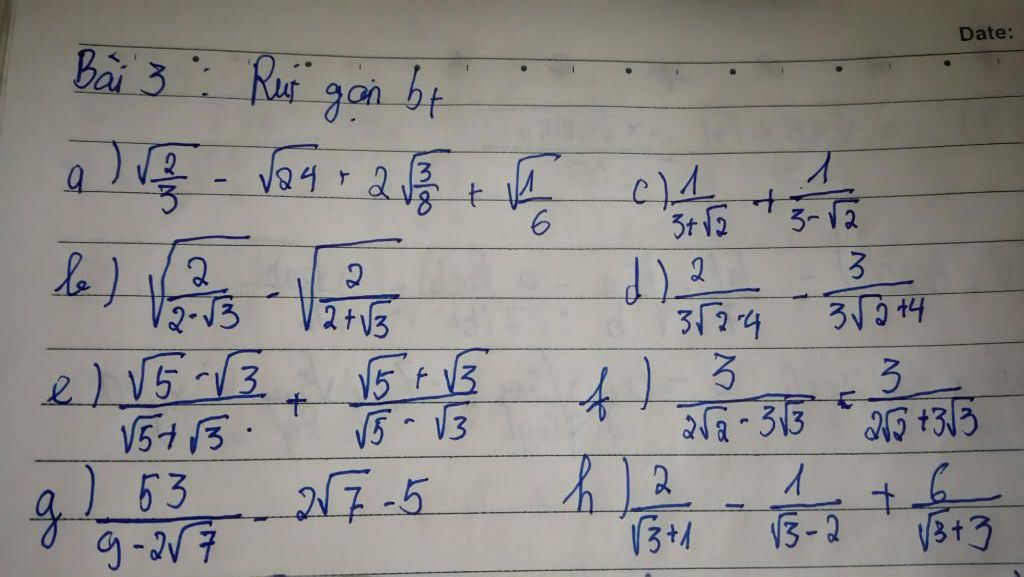 Date:
Bài 3 : Rút gọn bt
a) √(2/3) - √24 + 2√(3/8) + √(1/6) c) 1/(3+√2) + 1/(3-√2)
b) √(2/(2-√3)) - √(2/(2+√3)) d) 2/(3√2-4) - 3/(3√2+4)
e) (√5-√3)/(√5+√3) + (√5+√3)/(√5-√3) f) 3/(2√2-3√3) - 3/(2√2+3√3)
g) 53/(9-2√7) - 2√7-5 h) 2/(√3+1) - 1/(√3-2) + 6/(√3+3)